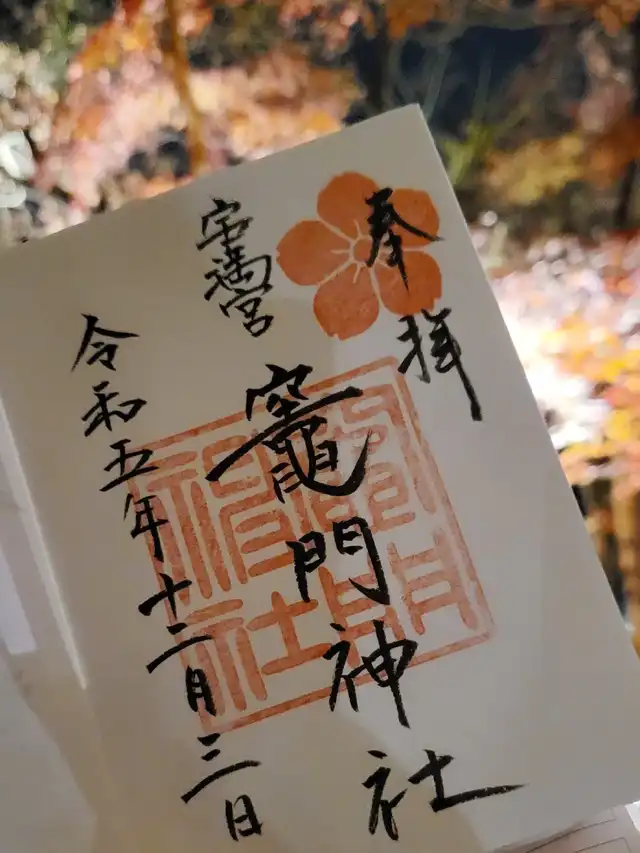 奉拝
宝満宮
竈門神社
令和五年十二月三日
竈門神社